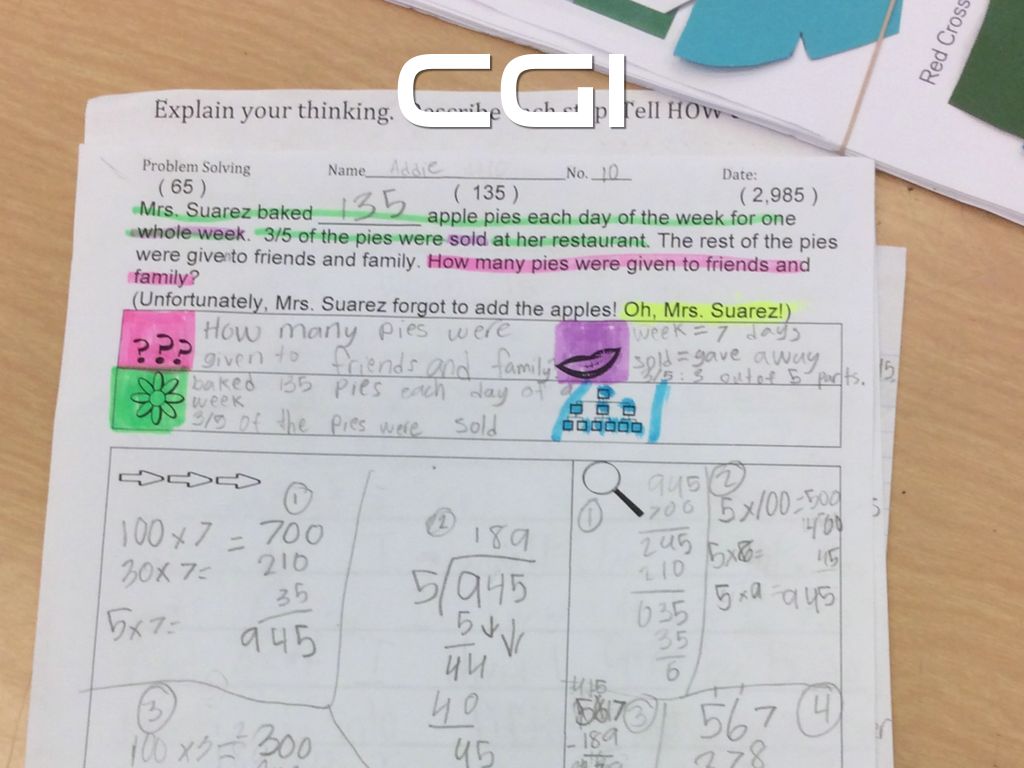 CGI
Red Cross
Explain your thinking. Describe each step. Tell HOW
Problem Solving Name Addie No. 10 Date:
( 65 ) ( 135 ) ( 2,985 )
Mrs. Suarez baked 135 apple pies each day of the week for one
whole week. 3/5 of the pies were sold at her restaurant. The rest of the pies
were given to friends and family. How many pies were given to friends and
family?
(Unfortunately, Mrs. Suarez forgot to add the apples! Oh, Mrs. Suarez!)
???
How many pies were
given to friends and family?
week = 7 days
sold = gave away
3/5 : 3 out of 5 parts.
baked 135 pies each day of a
week
3/5 of the pies were sold
1
100 x 7 = 700
30 x 7 = 210
5 x 7 = 35
945
2
189
5)945
5
44
40
45
1
945
700
245
210
035
35
6
2
5 x 100 = 500
400
5 x 8 = 45
5 x 9 = 945
3
100 x 3 = 300
3
567
- 189
4
567
378